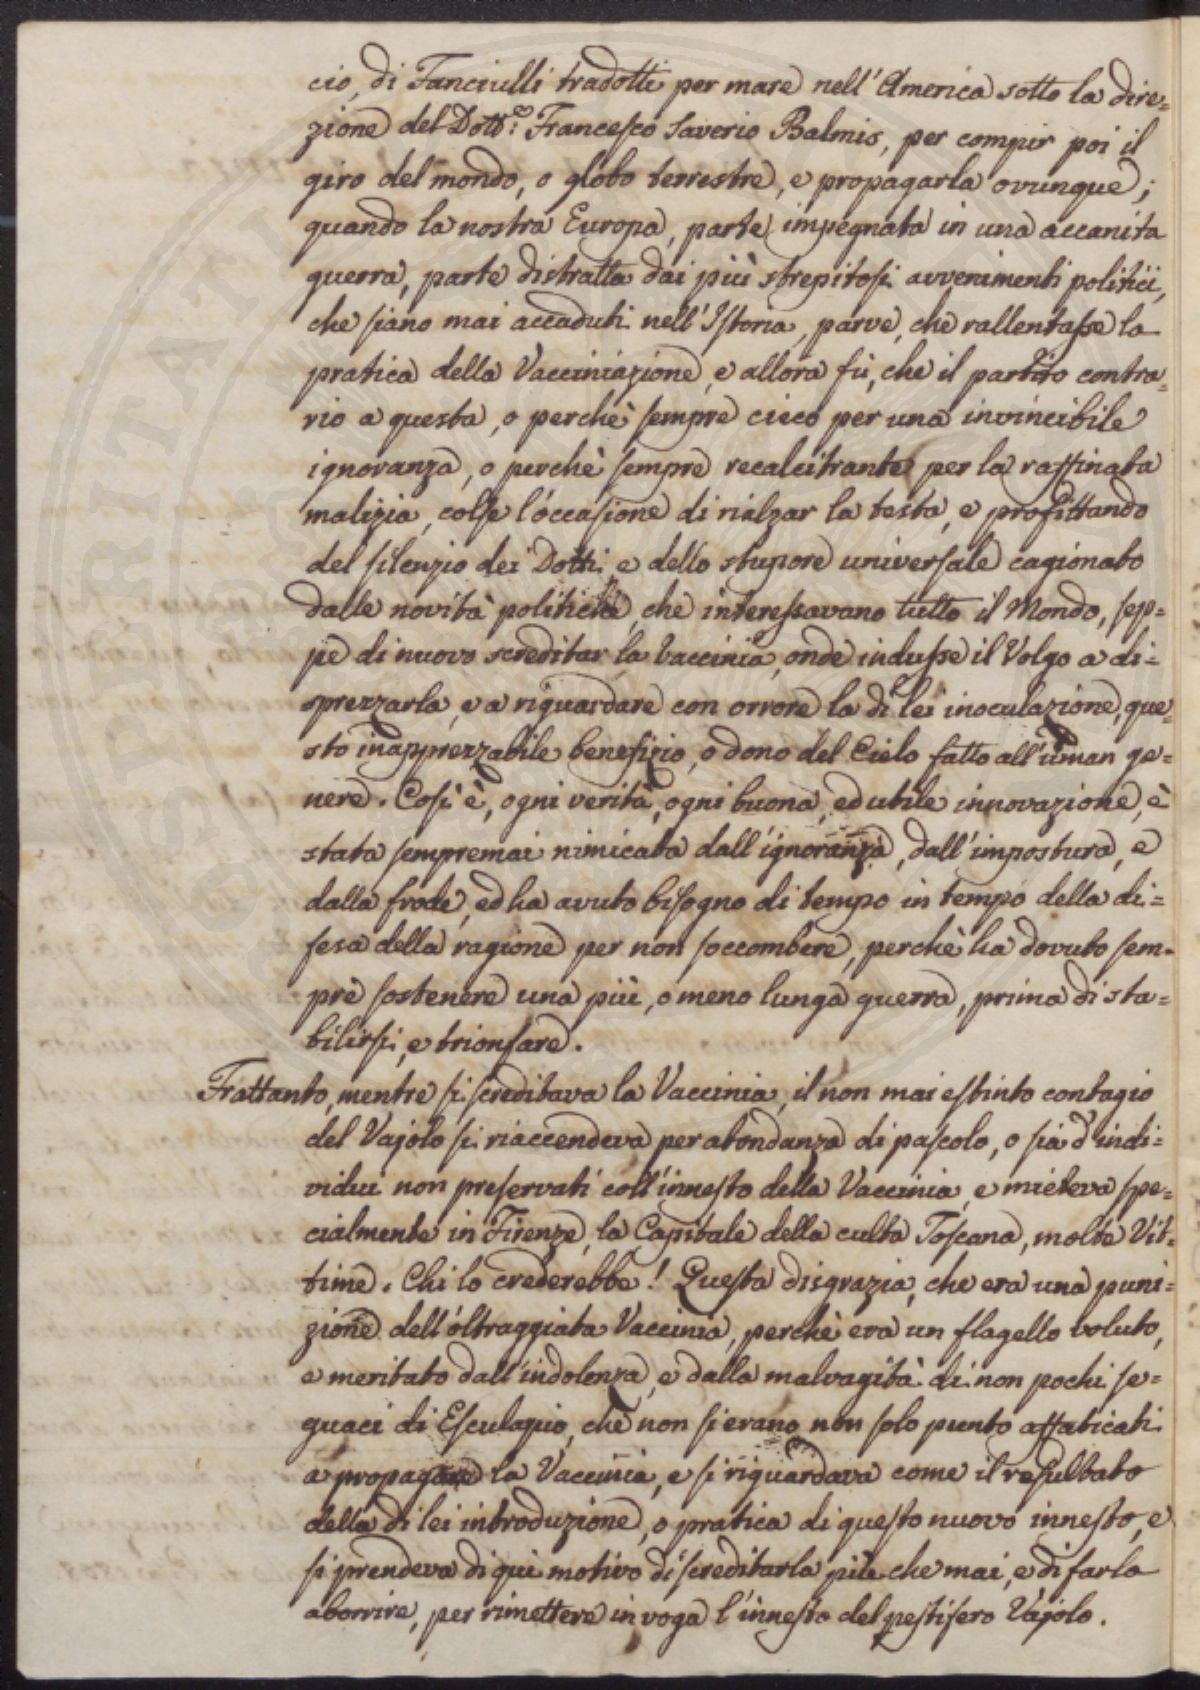 cio, di Fanciulli tradotti per mare nell'America sotto la dire=
zione del Dott.e Francesco Saverio Balmis, per compir poi il
giro del mondo, o globo terrestre, e propagarla ovunque;
quando la nostra Europa, parte impegnata in una accanita
guerra, parte distratta dai più strepitosi avvenimenti politici,
che siano mai accaduti nell'Istoria, parve, che rallentasse la
pratica della Vacciniazione, e allora fù, che il partito contra=
rio a questa, o perchè sempre cieco per una invincibile
ignoranza, o perchè sempre recalcitrante per la raffinata
malizia, colse l'occasione di rialzar la testa, e profittando
del silenzio dei Dotti, e dello stupore universale cagionato
dalle novità politiche, che interessavano tutto il Mondo, sep=
pe di nuovo screditar la Vaccinia, onde indusse il Volgo a di=
sprezzarla, e a riguardare con orrore la di lei inoculazione, que=
sto inapprezzabile benefizio, o dono del Cielo fatto all'uman ge=
nere. Così è, ogni verità, ogni buona, ed utile innovazione, è
stata sempremai nimicata dall'ignoranza, dall'impostura, e
dalla frode, ed ha avuto bisogno di tempo in tempo della di=
fesa della ragione per non soccombere, perchè ha dovuto sem=
pre sostenere una più, o meno lunga guerra, prima di sta=
bilirsi, e trionfare.
Frattanto, mentre si screditava la Vaccinia, il non mai estinto contagio
del Vajolo si riaccendeva per abondanza di pascolo, o sia d'indi=
vidui non preservati coll'innesto della Vaccinia, e mieteva spe=
cialmente in Firenze, la Capitale della culta Toscana, molte Vit=
time. Chi lo crederebbe! Questa disgrazia, che era una puni=
zione dell'oltraggiata Vaccinia, perchè era un flagello voluto,
e meritato dall'indolenza, e dalla malvagità di non pochi se=
guaci di Esculapio, che non si erano non solo punto affaticati
a propagare la Vaccinia, e si riguardava come il resultato
della di lei introduzione, o pratica di questo nuovo innesto, e
si prendeva di qui motivo di screditarla più che mai, e di farla
aborrire, per rimettere in voga l'innesto del pestifero Vajolo.